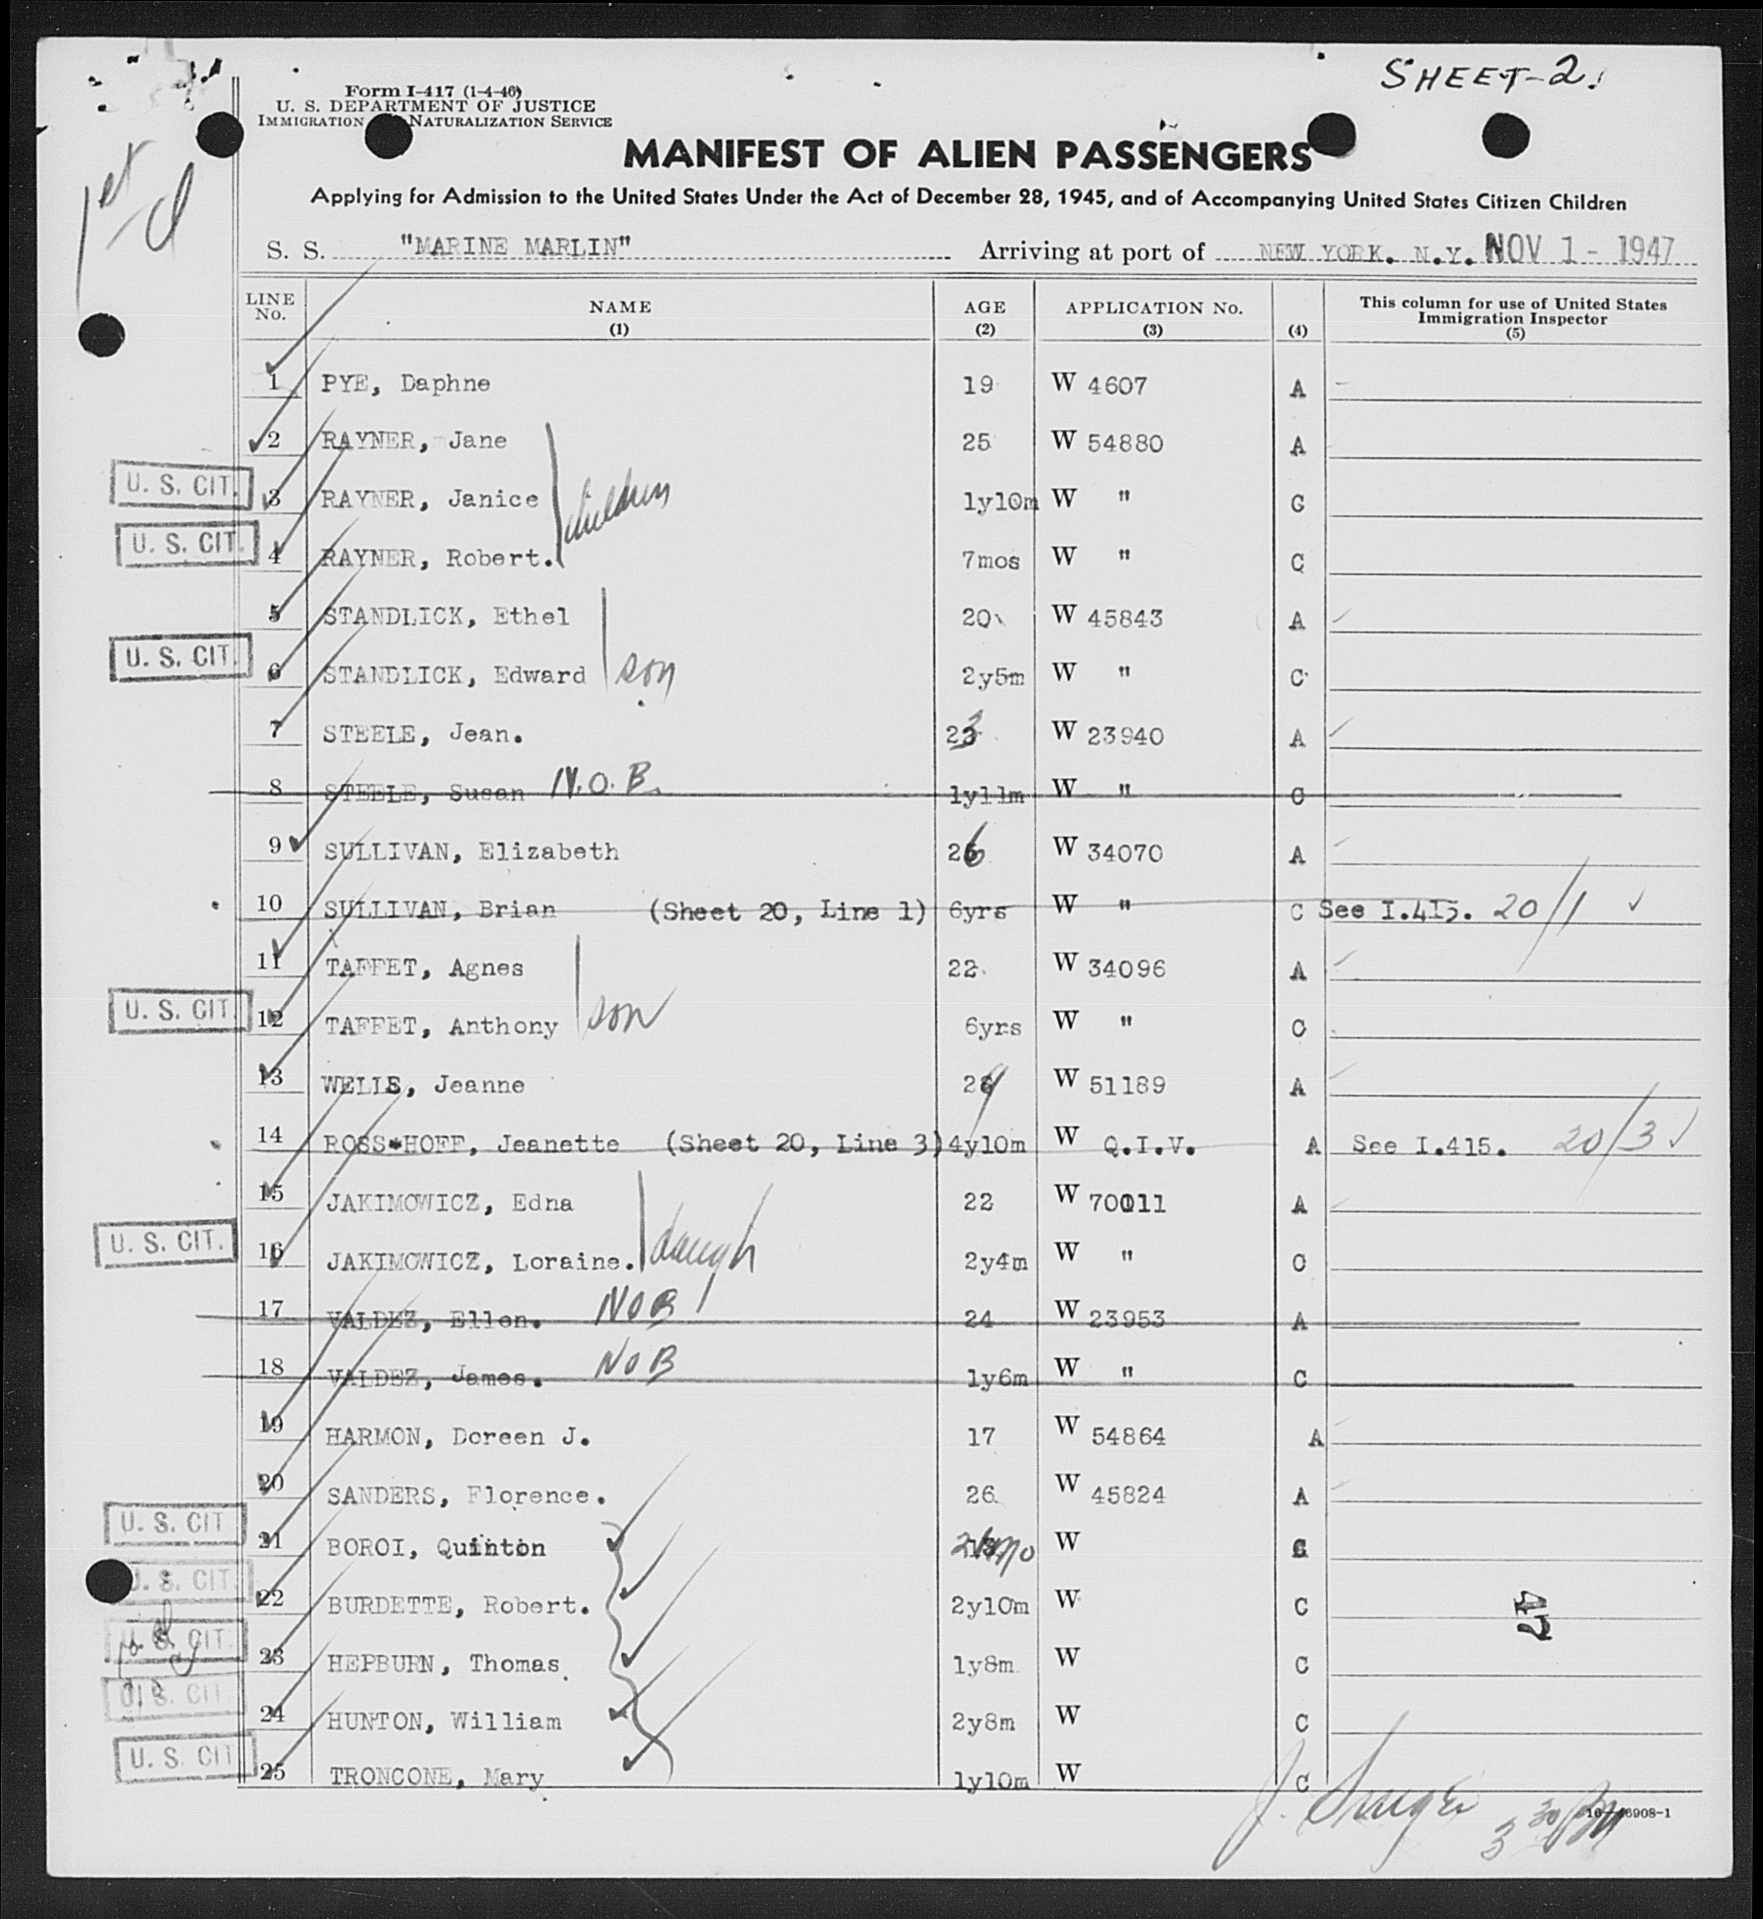 SHEET-2.
Form I-417 (1-4-46)
U. S. DEPARTMENT OF JUSTICE
IMMIGRATION NATURALIZATION SERVICE
MANIFEST OF ALIEN PASSENGERS
Applying for Admission to the United States Under the Act of December 28, 1945, and of Accompanying United States Citizen Children
S. S. "MARINE MARLIN" Arriving at port of NEW YORK. N.Y. NOV 1 - 1947
LINE No. NAME (1) AGE (2) APPLICATION No. (3) (4) This column for use of United States Immigration Inspector (5)
1 PYE, Daphne 19 W 4607 A
2 RAYNER, Jane 25 W 54880 A
U. S. CIT. 3 RAYNER, Janice children 1y10m W " C
U. S. CIT. 4 RAYNER, Robert. 7mos W " C
5 STANDLICK, Ethel 20 W 45843 A
U. S. CIT. 6 STANDLICK, Edward son 2y5m W " C
7 STEELE, Jean. 23 W 23940 A
8 STEELE, Susan N.O.B. 1y11m W " C
9 SULLIVAN, Elizabeth 26 W 34070 A
10 SULLIVAN, Brian (Sheet 20, Line 1) 6yrs W " C See I.415. 20/1 ✓
11 TAFFET, Agnes 22 W 34096 A
U. S. CIT. 12 TAFFET, Anthony son 6yrs W " C
13 WELLS, Jeanne 29 W 51189 A
14 ROSS*HOFF, Jeanette (Sheet 20, Line 3) 4y10m W Q.I.V. A See I.415. 20/3 ✓
15 JAKIMOWICZ, Edna 22 W 70011 A
U. S. CIT. 16 JAKIMOWICZ, Loraine. daugh 2y4m W " C
17 VALDEZ, Ellen. NOB 24 W 23953 A
18 VALDEZ, James. NOB 1y6m W " C
19 HARMON, Doreen J. 17 W 54864 A
20 SANDERS, Florence. 26 W 45824 A
U. S. CIT 21 BOROI, Quinton W C
U. S. CIT. 22 BURDETTE, Robert. 2y10m W C
U. S. CIT. 23 HEPBURN, Thomas 1y8m W C
U. S. CIT. 24 HUNTON, William 2y8m W C
U. S. CIT 25 TRONCONE, Mary 1y10m W C
16-46908-1